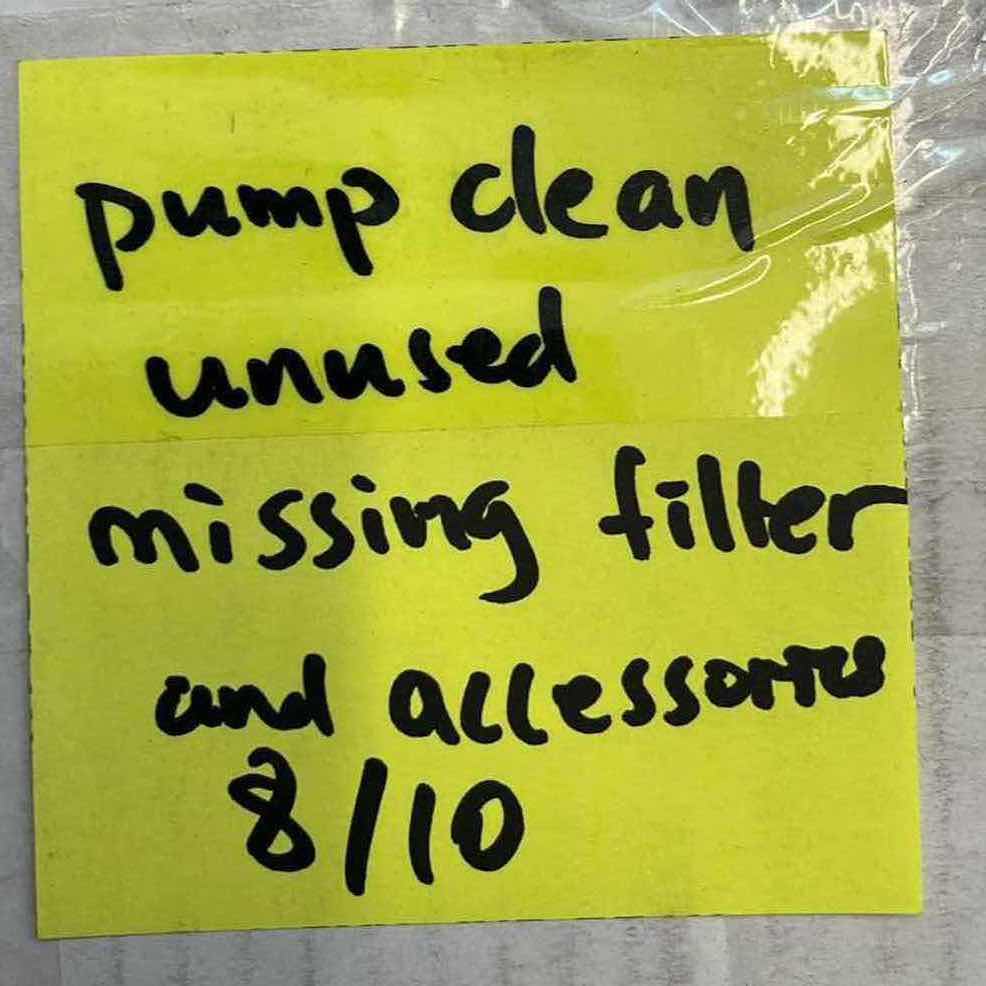 pump clean
unused
missing filter
and accessories
8/10